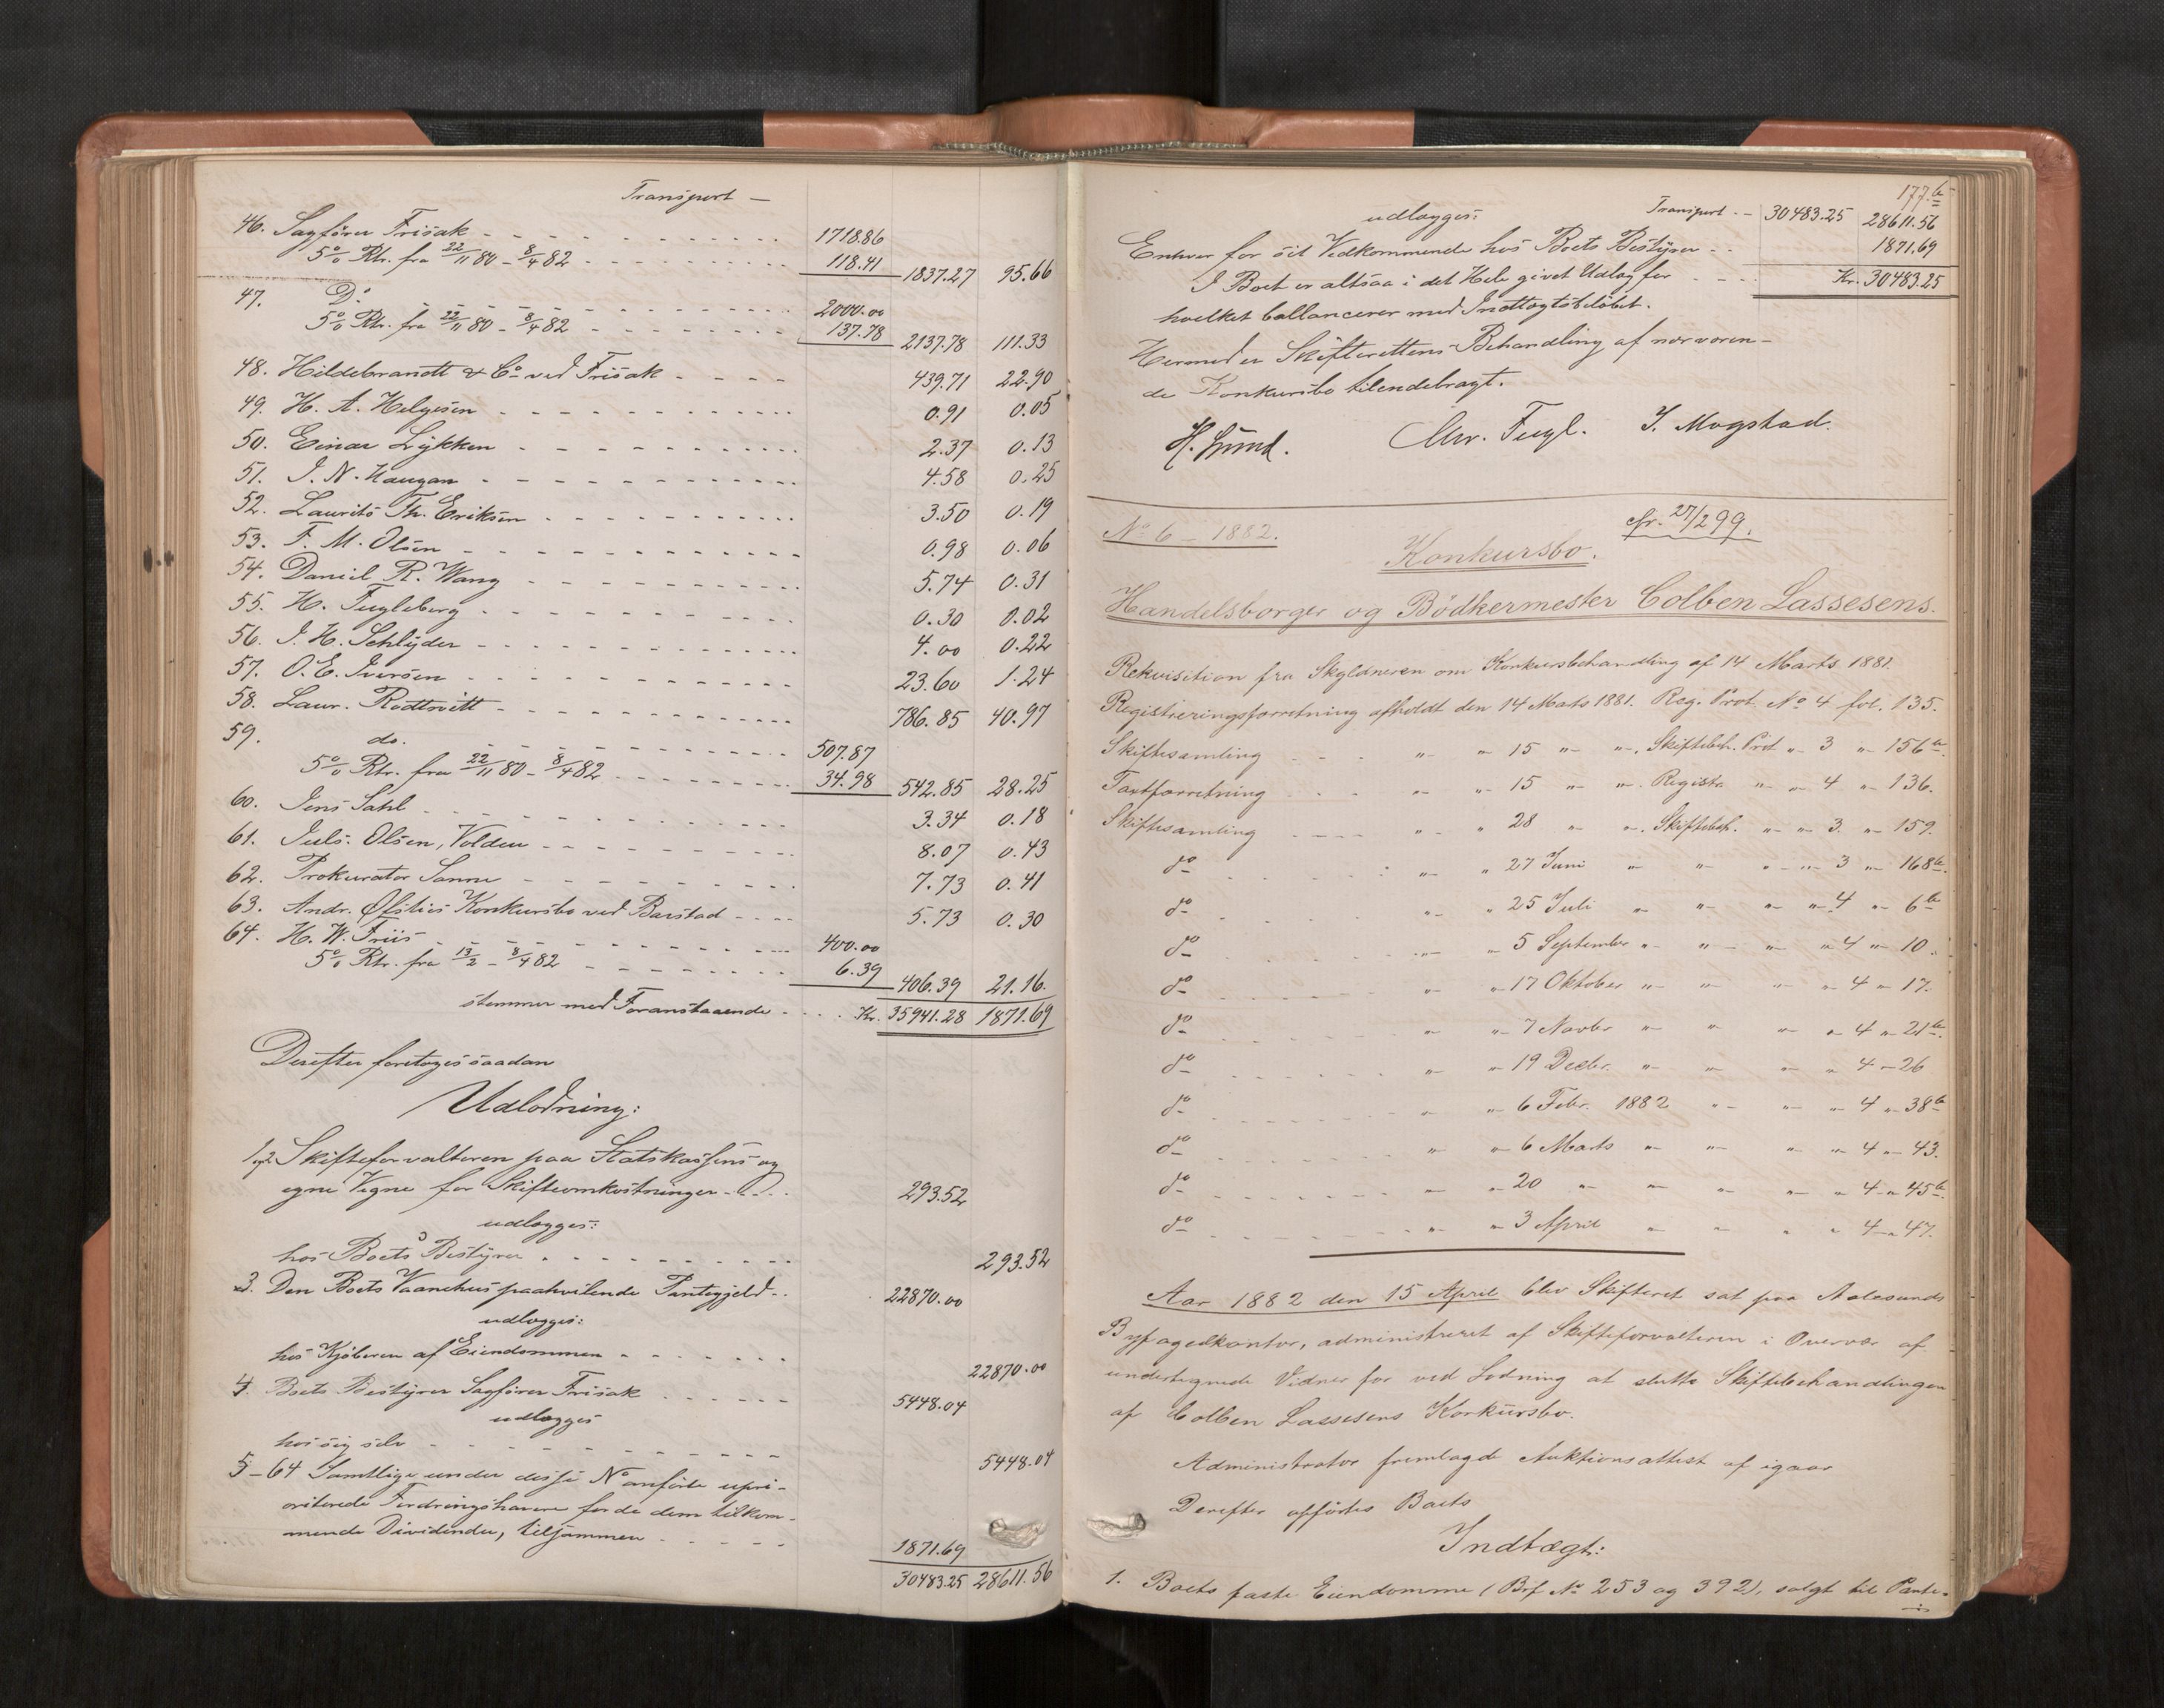 Transport —
46. Sagfører Friisak - - - 1718.86
5% Rtr. fra 22/11 80 - 8/4 82 - - - 118.41 1837.27 95.66
47. Do - - - 2000.00
5% Rtr. fra 22/11 80 - 8/4 82 - - - 137.78 2137.78 111.33
48. Hildebrandt & Co ved Friisak - - - 439.71 22.90
49. H. A. Helgesen - - - 0.91 0.05
50. Einar Lykken - - - 2.37 0.13
51. I. N. Haugan - - - 4.58 0.25
52. Laurits Th. Eriksen - - - 3.50 0.19
53. F. M. Olsen - - - 0.98 0.06
54. Daniel R. Wang - - - 5.74 0.31
55. H. Fugleberg - - - 0.30 0.02
56. I. H. Schlyder - - - 4.00 0.22
57. O. E. Iversen - - - 23.60 1.24
58. Laur. Rodtwitt - - - 786.85 40.97
59. do. - - - 507.87
5% Rtr. fra 22/11 80 - 8/4 82 - - - 34.98 542.85 28.25
60. Jens Sahl - - - 3.34 0.18
61. Juls. Olsen, Volden - - - 8.07 0.43
62. Prokurator Sanne - - - 7.73 0.41
63. Andr. Øfsties Konkursbo ved Barstad - - - 5.73 0.30
64. H. W. Friis - - - 400.00
5% Rtr. fra 13/2 - 8/4 82 - - - 6.39 406.39 21.16
stemmer med Foranstaaende - - - Kr. 35941.28 1871.69
Derefter foretoges saadan
Udlodning:
1 og 2 Skifteforvalteren paa Statskassens og
egne Vegne for Skifteomkostninger - - - 293.52
udlægges:
hos Boets Bestyrer - - - 293.52
3. Den Boets Vaanehus paahvilende Pantegjeld - - 22870.00
udlægges:
hos Kjøberen af Eiendommen - - - 22870.00
4. Boets Bestyrer Sagfører Friisak - - - 5448.04
udlægges
hos sig selv - - - 5448.04
5-64 Samtlige under disse No anførte upri-
oriterede Fordringshavere for de dem tilkom-
mende Dividender, tilsammen - - - 1871.69
30483.25 28611.56
177.b
Transport - - 30483.25 28611.56
udlægges:
Enhver for sit Vedkommende hos Boets Bestyrer - - 1871.69
I Boet er altsaa i det Hele givet Udlæg for - - - Kr. 30483.25
hvilket ballancerer med Indtægtsbeløbet.
Hermed er Skifterettens Behandling af nærværen-
de Konkursbo tilendebragt.
H. Lund. Chr. Fugl. I. Mogstad.
No 6 - 1882. cfr. 27/299.
Konkursbo.
Handelsborger og Bødkermester Colben Lassesens.
Rekvisition fra Skyldneren om Konkursbehandling af 14 Marts 1881.
Registreringsforretning afholdt den 14 Mats 1881. Reg. Prot No 4 fol. 135.
Skiftesamling - - - " " 15 " ". Skiftebeh. Prot " 3 " 156b.
Taxtforretning - - " " 15 " ". Registr. " " 4 " 136.
Skiftesamling - - - " " 28 " ". Skiftebeh. " " 3. " 159.
do - - - " " 27 Juni " " " " 3 " 168b.
do - - - " " 25 Juli " " " " 4 " 6b
do - - - " " 5 September " " " " 4 " 10.
do - - - " " 17 Oktober " " " " 4 " 17.
do - - - " " 7 Novbr " " " " 4 " 21b.
do - - - " " 19 Decbr. " " " " 4 " 26
do - - - " " 6 Febr. 1882 " " " 4 " 38b
do - - - " " 6 Marts " " " " 4 " 43.
do - - - " " 20 " " " " " 4 " 45b.
do - - - " " 3 April " " " " 4 " 47.
Aar 1882 den 15 April blev Skifteret sat paa Aalesunds
Byfogedkontor, administreret af Skifteforvalteren i Overvær af
undertegnede Vidner for ved Lodning at slutte Skiftebehandlingen
af Colben Lassesens Konkursbo.
Administrator fremlagde Auktionsattest af igaar
Derefter opførtes Boets
Indtægt:
1. Boets faste Eiendomme (Brf No 253 og 392), solgt til Pante-